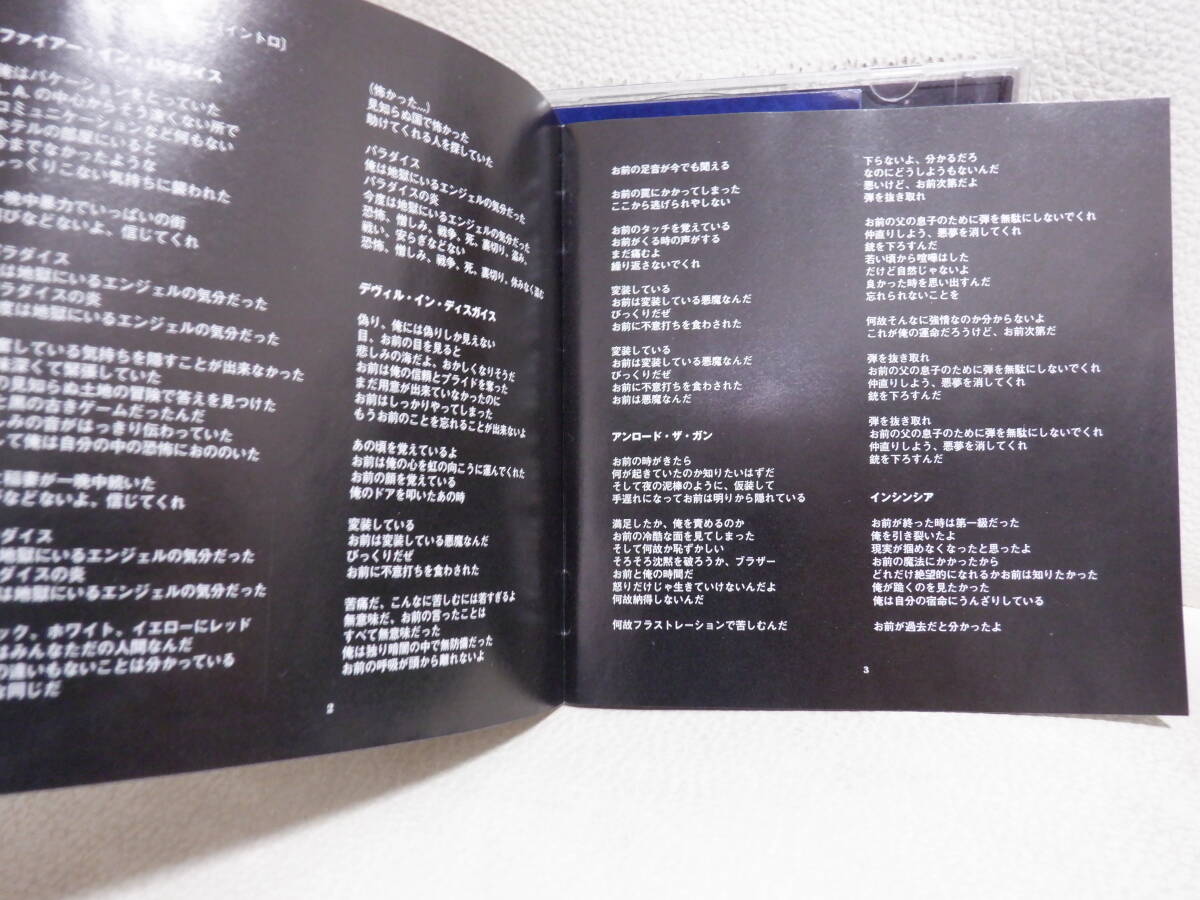 イントロ]
ファイアー・イン・パラダイス
俺はバケーションをとっていた
L.A.の中心からそう遠くない所で
コミュニケーションなど何もない
ホテルの部屋にいると
今までなかったような
しっくりこない気持ちに襲われた
晩中暴力でいっぱいの街
びなどないよ、信じてくれ
ラダイス
は地獄にいるエンジェルの気分だった
ラダイスの炎
度は地獄にいるエンジェルの気分だった
している気持ちを隠すことが出来なかった
深くて緊張していた
の見知らぬ土地の冒険で答えを見つけた
と黒の古きゲームだったんだ
しみの音がはっきり伝わっていた
して俺は自分の中の恐怖におののいた
稲妻が一晩中続いた
などないよ、信じてくれ
ダイス
地獄にいるエンジェルの気分だった
ダイスの炎
は地獄にいるエンジェルの気分だった
ック、ホワイト、イエローにレッド
はみんなただの人間なんだ
の違いもないことは分かっている
な同じだ
(怖かった…)
見知らぬ国で怖かった
助けてくれる人を探していた
パラダイス
俺は地獄にいるエンジェルの気分だった
パラダイスの炎
今度は地獄にいるエンジェルの気分だった
恐怖、憎しみ、戦争、死、裏切り、盗み、
戦い、安らぎなどない
恐怖、憎しみ、戦争、死、裏切り、休みなく盗む
デヴィル・イン・ディスガイス
偽り、俺には偽りしか見えない
目、お前の目を見ると
悲しみの海だよ、おかしくなりそうだ
お前は俺の信頼とプライドを奪った
まだ用意が出来ていなかったのに
お前はしっかりやってしまった
もうお前のことを忘れることが出来ないよ
あの頃を覚えているよ
お前は俺の心を虹の向こうに運んでくれた
お前の顔を覚えている
俺のドアを叩いたあの時
変装している
お前は変装している悪魔なんだ
びっくりだぜ
お前に不意打ちを食わされた
苦痛だ、こんなに苦しむには若すぎるよ
無意味だ、お前の言ったことは
すべて無意味だった
俺は独り暗闇の中で無防備だった
お前の呼吸が頭から離れないよ
2
お前の足音が今でも聞える
お前の罠にかかってしまった
ここから逃げられやしない
お前のタッチを覚えている
お前がくる時の声がする
まだ痛むよ
繰り返さないでくれ
変装している
お前は変装している悪魔なんだ
びっくりだぜ
お前に不意打ちを食わされた
変装している
お前は変装している悪魔なんだ
びっくりだぜ
お前に不意打ちを食わされた
お前は悪魔なんだ
アンロード・ザ・ガン
お前の時がきたら
何が起きていたのか知りたいはずだ
そして夜の泥棒のように、仮装して
手遅れになってお前は明りから隠れている
満足したか、俺を責めるのか
お前の冷酷な面を見てしまった
そして何故か恥ずかしい
そろそろ沈黙を破ろうか、ブラザー
お前と俺の時間だ
怒りだけじゃ生きていけないんだよ
何故納得しないんだ
何故フラストレーションで苦しむんだ
下らないよ、分かるだろ
なのにどうしようもないんだ
悪いけど、お前次第だよ
弾を抜き取れ
お前の父の息子のために弾を無駄にしないでくれ
仲直りしよう、悪夢を消してくれ
銃を下ろすんだ
若い頃から喧嘩はした
だけど自然じゃないよ
良かった時を思い出すんだ
忘れられないことを
何故そんなに強情なのか分からないよ
これが俺の運命だろうけど、お前次第だ
弾を抜き取れ
お前の父の息子のために弾を無駄にしないでくれ
仲直りしよう、悪夢を消してくれ
銃を下ろすんだ
弾を抜き取れ
お前の父の息子のために弾を無駄にしないでくれ
仲直りしよう、悪夢を消してくれ
銃を下ろすんだ
インシンシア
お前が終った時は第一級だった
俺を引き裂いたよ
現実が掴めなくなったと思ったよ
お前の魔法にかかったから
どれだけ絶望的になれるかお前は知りたかった
俺が跪くのを見たかった
俺は自分の宿命にうんざりしている
お前が過去だと分かったよ
3